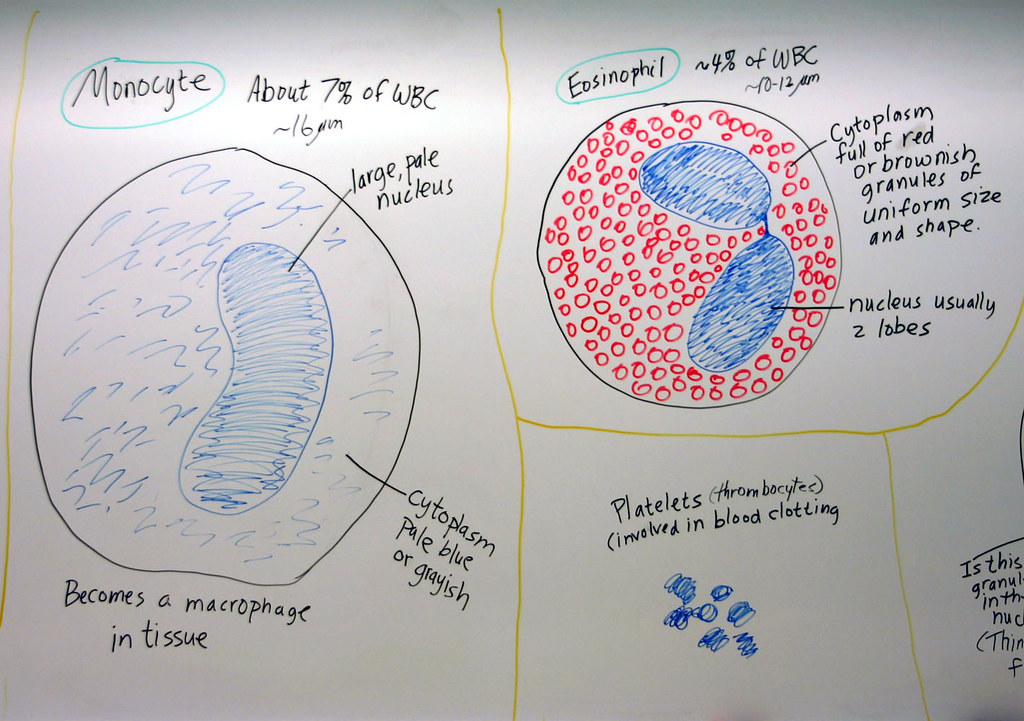 Monocyte
About 7% of WBC
~16 µm
large, pale
nucleus
Cytoplasm
pale blue
or grayish
Becomes a macrophage
in tissue
Eosinophil
~4% of WBC
~10-12 µm
Cytoplasm
full of red
or brownish
granules of
uniform size
and shape.
nucleus usually
2 lobes
Platelets (thrombocytes)
(involved in blood clotting
Is this
granul
in th
nuc
(Thin
f